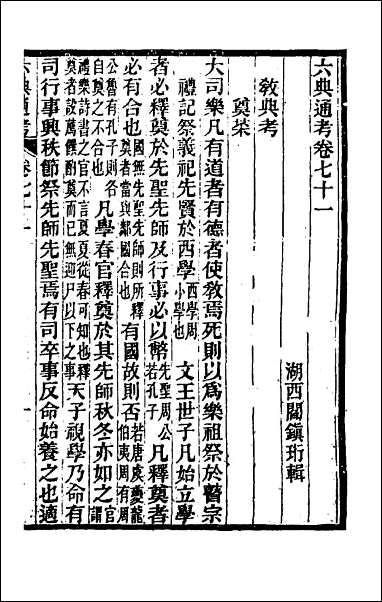 六典通考卷七十一
湖西閻鎭珩輯
敎典考
奠菜
大司樂凡有道者有德者使敎焉死則以爲樂祖祭於瞽宗
禮記祭義祀先賢於西學西學周小學也文王世子凡始立學
者必釋奠於先聖先師及行事必以幣先聖周公若孔子凡釋奠者
必有合也國無先聖先師則所釋奠者當與鄰國合也有國故則否若唐虞有夔龍伯夷周有周
公魯有孔子則各自奠之不合也凡學春官釋奠於其先師秋冬亦如之官謂
禮樂詩書之官不言夏夏從春可知也釋奠者設薦饌酌奠而已無迎尸以下之事天子視學乃命有
司行事興秩節祭先師先聖焉有司卒事反命始養之也適
六典通考
卷七十一
一